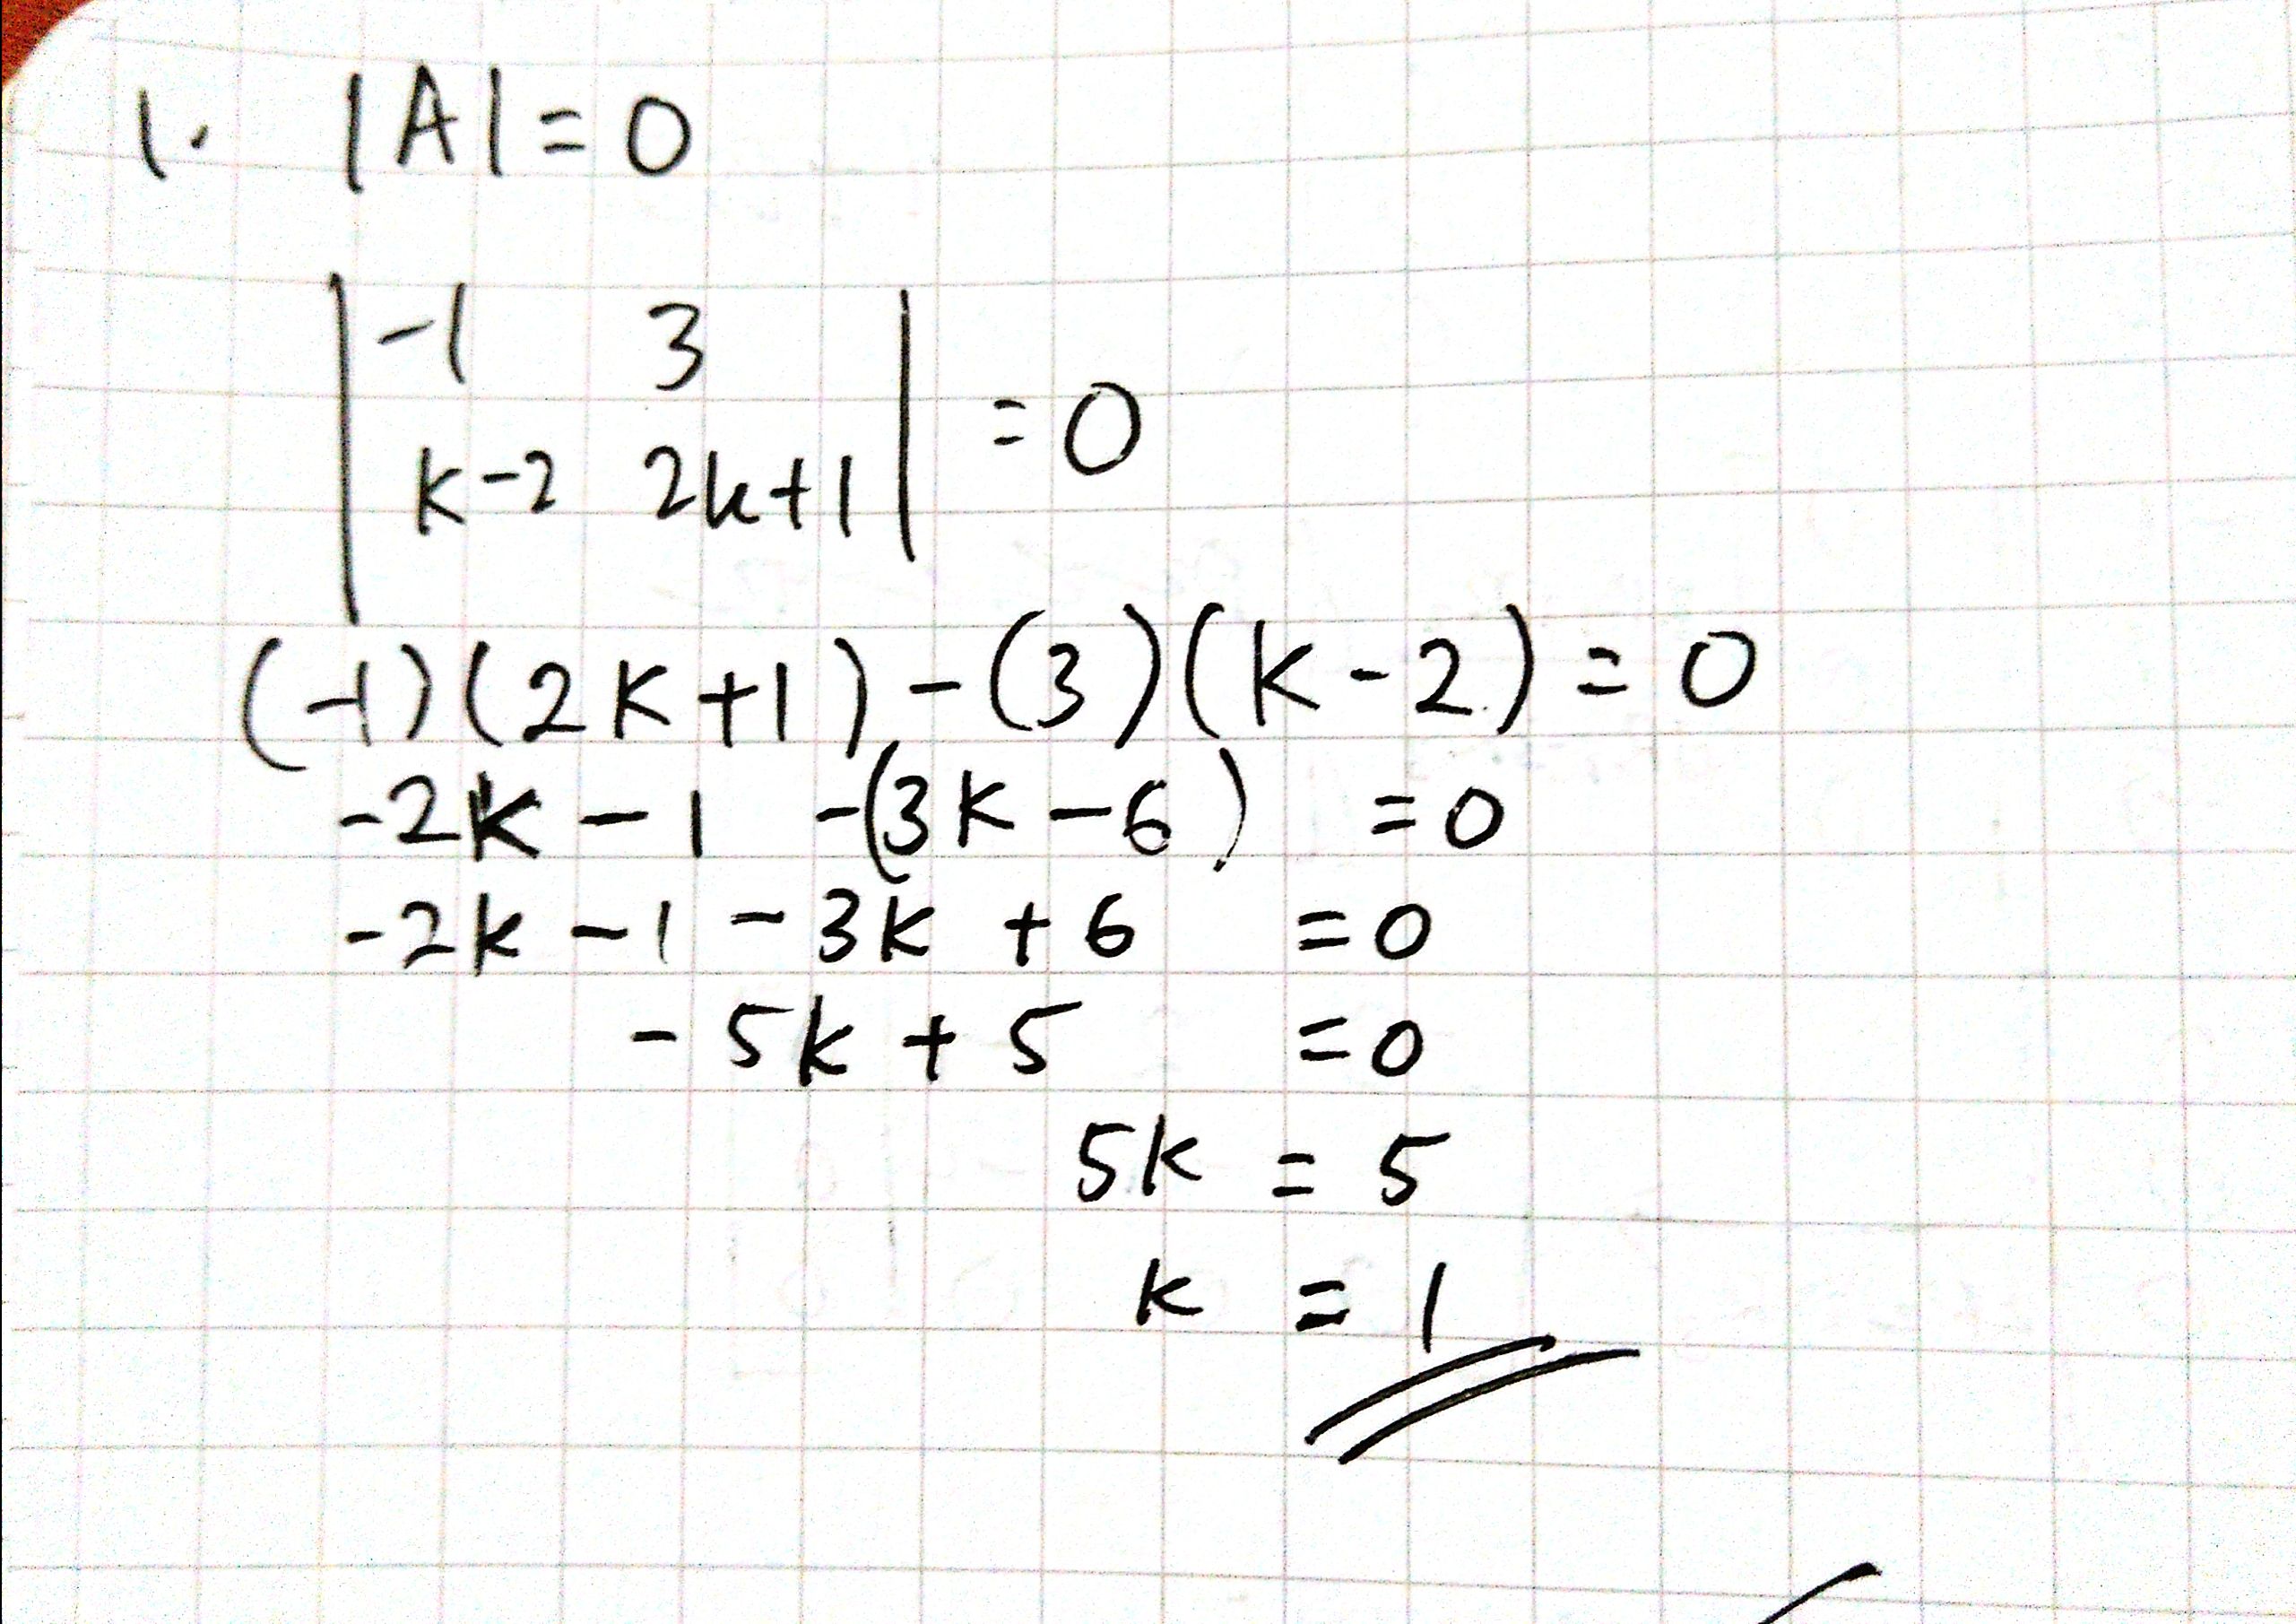 1. |A| = 0
| -1 3 |
| k-2 2k+1 | = 0
(-1)(2k+1) - (3)(k-2) = 0
-2k - 1 -(3k - 6) = 0
-2k - 1 - 3k + 6 = 0
- 5k + 5 = 0
5k = 5
k = 1